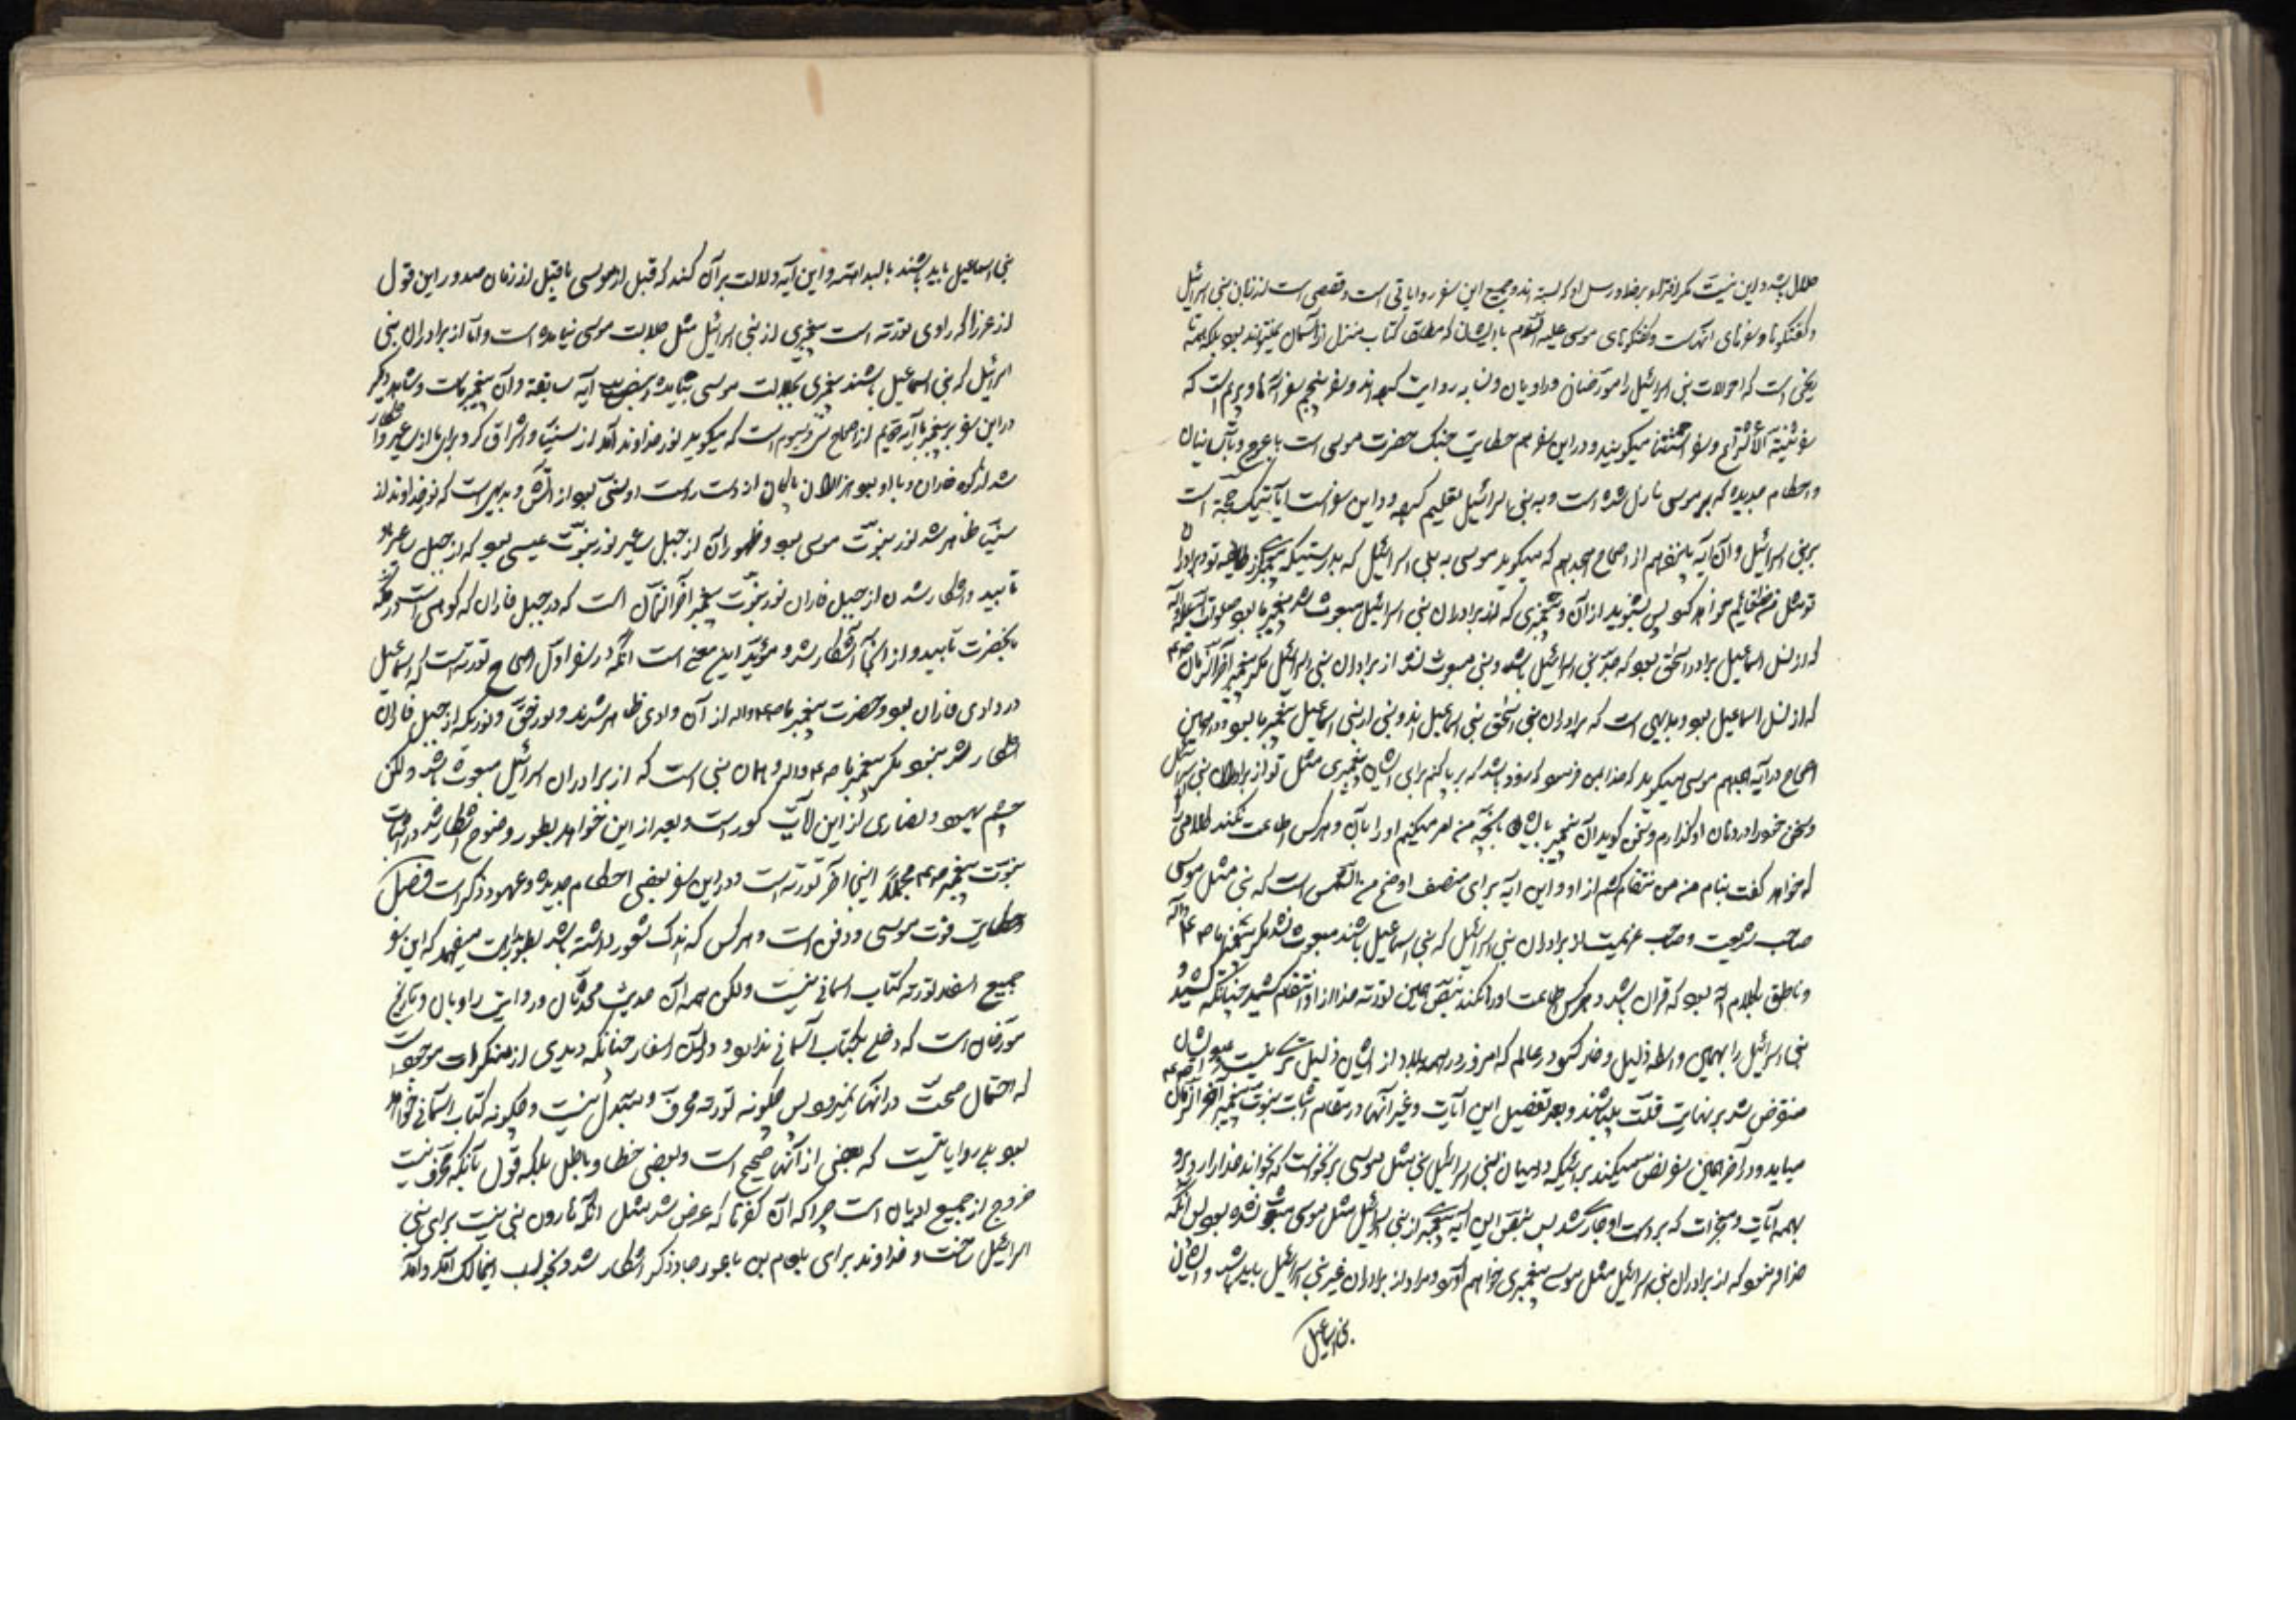 حلال باشد و این نیست مگر افترا بر خدا و رسل او که بسته اند و جمیع این سفر روایاتی است و قصصی است از زبان بنی اسرائیل
و گفتگوها و سفرهای انهاست و گفتگوهای موسی علیه السلام با ایشان که مطلقا کتاب منزل از آسمان نمیتواند بود بلکه همه
است که احوالات بنی اسرائیل را مورخان و راویان و روایت کرده اند و سفر پنجم سفر است که
سفر میگویند و در این سفر هم حکایت جنک حضرت موسی است با عوج و
و احکام جدیده که بر موسی نازل شده است و به بنی اسرائیل تعلیم کرده و در این سفر است آیاتیکه حجة است
بر بنی اسرائیل و آن آیه پانزدهم از اصحاح هجدهم که میگوید موسی به بنی اسرائیل که بدرستیکه
تو مثل من قائم خواهد کرد پس بشنوید از آن و پیغمبری که از برادران بنی اسرائیل مبعوث شد پیغمبر ما بود صلوات الله علیه و آله
که از نسل اسماعیل برادر اسحق بود که جد بنی اسرائیل باشد و نبی مبعوث نشد از برادران بنی اسرائیل مگر پیغمبر آخرالزمان
که از نسل اسماعیل بود و بدیهی است که برادران بنی اسحق بنی اسماعیل اند و نبی از بنی اسماعیل پیغمبر ما بود و در همین
اصحاح در آیه هجدهم موسی میگوید که خدا بمن فرمود که زود باشد که برپا کنم برای ایشان پیغمبری مثل تو از برادران بنی اسرائیل
و سخن خود را در دهان او گذارم و سخن گوید آن پیغمبر با ایشان بآنچه من امر میکنم او را بآن و هرکس اطاعت نکند کلام
که خواهد گفت بنام من من انتقام کشم از او و این آیه برای منصف اوضح من الشمس است که نبی مثل موسی
صاحب شریعت و صاحب عزیمت از برادران بنی اسرائیل که بنی اسماعیل باشند مبعوث نشد مگر پیغمبر ما
و ناطق بکلام الله بود که قران باشد و هرکس اطاعت او را نکند بنص همین توریة خدا از او انتقام کشید چنانکه کشید
بنی اسرائیل را بهمین واسطه ذلیل و خار کرد در عالم که امروز در همه بلاد از ایشان ذلیل تر کسی نیست
منقرض شد بر نهایت قلت باشند و بعد تفصیل این آیات و غیر آنها در مقام اثبات نبوت پیغمبر آخر الزمان
میاید و در آخر همین سفر نص میکند بر اینکه در میان بنی اسرائیل نبی مثل موسی برنخواست که بخواند خدا را رو برو
بهمه آیات و معجزات که بر دست او جاری شد پس بنص این آیه پیغمبری از بنی اسرائیل مثل موسی مبعوث نشده بود پس آنکه
خدا فرمود که از برادران بنی اسرائیل مثل موسی پیغمبری خواهم آورد مراد از برادران غیر بنی اسرائیل باید باشد و ایشان
بنی اسماعیل
بنی اسماعیل باید باشند بالبداهة و این آیه دلالت بر آن کند که قبل از موسی یا قبل از زمان صدور این قول
از عزرا که راوی توریة است پیغمبری از بنی اسرائیل مثل جلالت موسی نیامده است و اما از برادران بنی
اسرائیل که بنی اسماعیل باشند پیغمبری بجلالت موسی بیاید آیه سابقه و آن پیغمبر ماست و شاهد دیگر
در این سفر بر پیغمبر ما آیه دویم از اصحاح سی و سیوم است که میگوید نور خداوند آمد از سینا و اشراق کرد برای ما از ساعیر و آشکار
شد از کوه فاران و با او بود هزاران پاکان از دست راست او سنتی بود از آتش و بدیهی است که نور خداوند از
سینا ظاهر شد نور نبوت موسی بود و ظهور آن از جبل ساعیر نور نبوت عیسی بود که از جبل ساعیر
تابید و اشکار شدن از جبل فاران نور نبوت پیغمبر آخرالزمان است که در جبل فاران که کوهی است در مکه
بانحضرت تابید و از آنجا آشکار شد و مؤید این معنی است آنکه در سفر اول اصحاح توریة است که اسماعیل
در وادی فاران بود و حضرت پیغمبر ما از آن وادی ظاهر شدند و نور حق و نوریکه از جبل فاران
اشکار شد نبود مگر پیغمبر ما و همان نبی است که از برادران اسرائیل مبعوث شد ولکن
چشم یهود و نصاری از این آیات کور است و بعد از این خواهد بطور وضوح اشکار شد در اثبات
نبوت پیغمبر مجملا اینجا آخر توریة است و در این سفر بعضی احکام جدیده و عهود ذکر است فضل
حکایت فوت موسی و دفن است و هرکس که اندک شعور داشته باشد بطور بداهت میفهمد که این سفر
جمیع اسفار توریة کتاب اسمانی نیست ولکن همه آن حدیث محدثان و روایت راویان و تاریخ
مورخان است که دخلی بکتاب آسمانی ندارد و در این اسفار چنانکه دیدی از منکرات موجود است
که احتمال صحت در انها نمیرود پس چگونه توریة محرف و مبدل نیست و چگونه کتاب آسمانی خواهد
بود بلی روایاتیست که بعضی از آنها صحیح است و بعضی خطا و باطل بلکه قول بآنکه محرف نیست
خروج از جمیع ادیان است چرا که آن کفرها که عرض شد مثل آنکه هارون بتی برای بنی
اسرائیل ساخت و خداوند برای بلعام بن باعور جادوگر اشکار شد